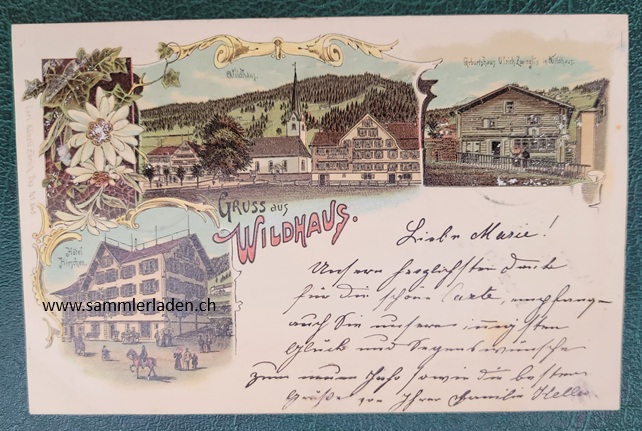 Wildhaus.
Geburtshaus Ulrich Zwingli's in Wildhaus.
GRUSS aus
WILDHAUS.
Hôtel
Hirschen
www.sammlerladen.ch
Liebe Marie!
Unsern herzlichsten Dank
für die schöne Carte, empfang-
auch Sie unsere innigsten
Glück und Segenswünsche
zum neuen Jahr sowie die besten
Grüße von Ihrer Familie Keller